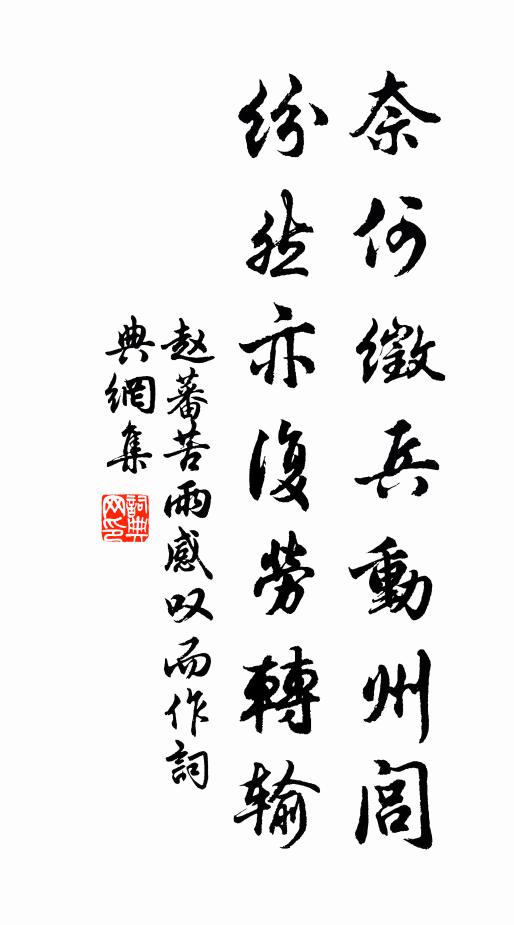 奈何徵兵動州閭
紛然亦復勞轉输
赵蕃苦雨感叹而作詞
典網集
詞典网印